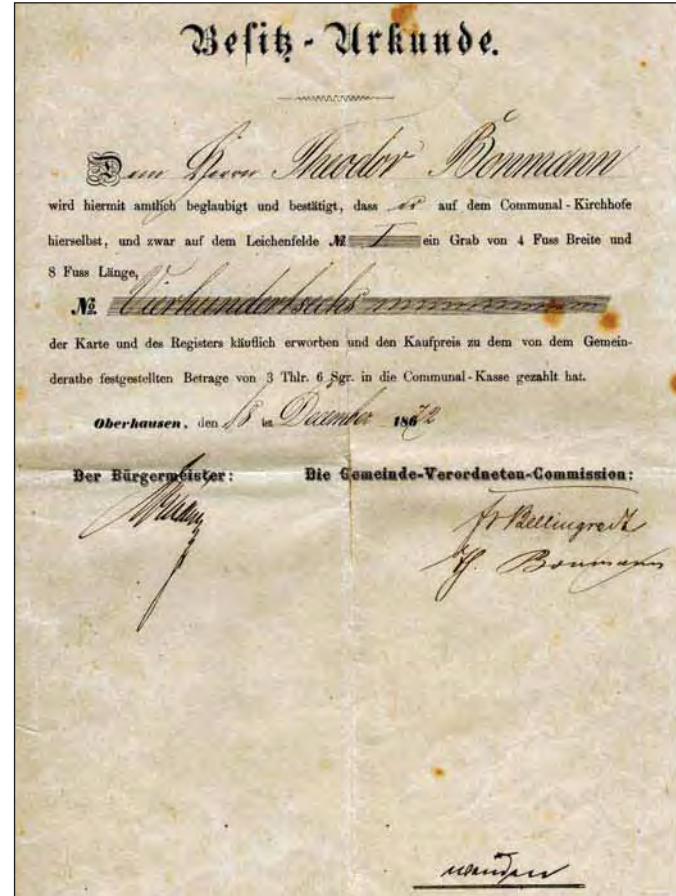 Besitz - Urkunde.
Dem Herrn Theodor Bönmann
wird hiermit amtlich beglaubigt und bestätigt, dass er auf dem Communal - Kirchhofe
hierselbst, und zwar auf dem Leichenfelde № I ein Grab von 4 Fuss Breite und
8 Fuss Länge,
№ Vierhundertsechs
der Karte und des Registers käuflich erworben und den Kaufpreis zu dem von dem Gemein-
derathe festgestellten Betrage von 3 Thlr. 6 Sgr. in die Communal - Kasse gezahlt hat.
Oberhausen, den 18 ten December 1872
Der Bürgermeister: Die Gemeinde-Verordneten-Commission:
Fr Bellingrodt
Th. Bönmann
wenden